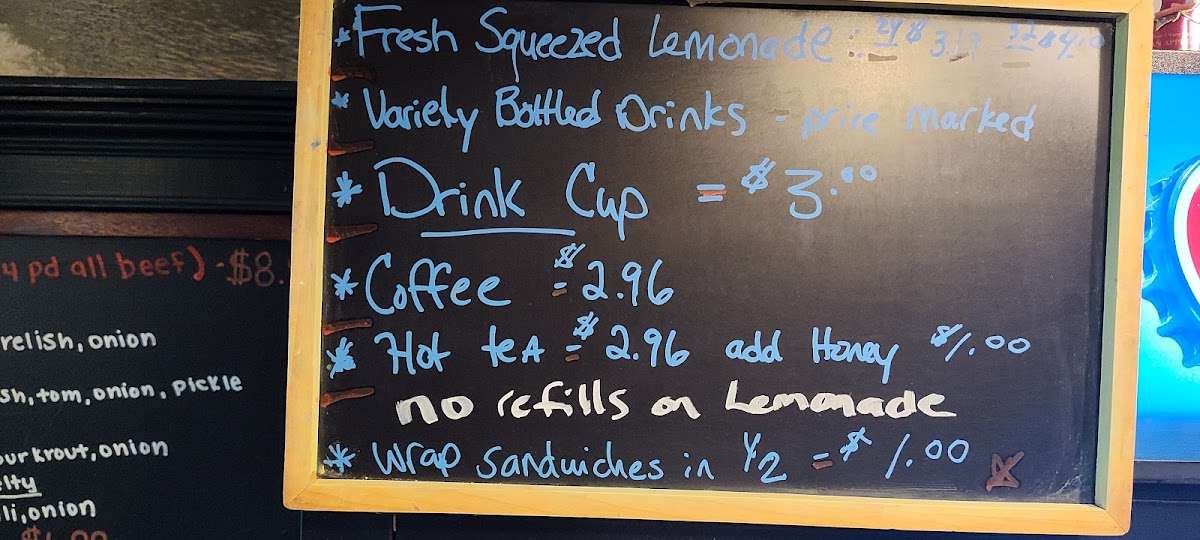 *Fresh Squeezed Lemonade: 24 $3.19 32 $4.
* Variety Bottled Drinks - price marked
* Drink Cup = $3.00
* Coffee = $2.96
* Hot teA = $2.96 add Honey $1.00
no refills on Lemonade
* Wrap sandwiches in 1/2 = $1.00
4 pd all beef) - $8.
relish, onion
sh, tom, onion, pickle
ur krout, onion
lty
li, onion